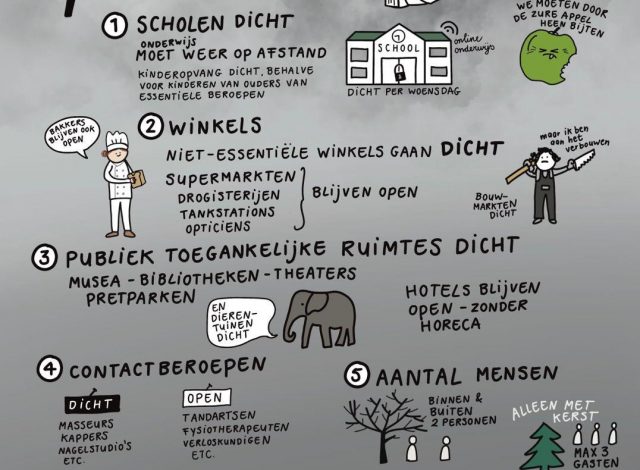 WE MOETEN DOOR
DE ZURE APPEL
HEEN BIJTEN
1 SCHOLEN DICHT
ONDERWIJS
MOET WEER OP AFSTAND
KINDEROPVANG DICHT, BEHALVE
VOOR KINDEREN VAN OUDERS VAN
ESSENTIËLE BEROEPEN
SCHOOL
online
onderwijs
DICHT PER WOENSDAG
BAKKERS
BLIJVEN OOK
OPEN
2 WINKELS
NIET-ESSENTIËLE WINKELS GAAN DICHT
SUPERMARKTEN
DROGISTERIJEN
TANKSTATIONS
OPTICIENS
BLIJVEN OPEN
maar ik ben
aan het
verbouwen
BOUW-
MARKTEN
DICHT
3 PUBLIEK TOEGANKELIJKE RUIMTES DICHT
MUSEA - BIBLIOTHEKEN - THEATERS
PRETPARKEN
EN
DIEREN-
TUINEN
DICHT
HOTELS BLIJVEN
OPEN - ZONDER
HORECA
4 CONTACTBEROEPEN
DICHT
MASSEURS
KAPPERS
NAGELSTUDIO'S
ETC.
OPEN
TANDARTSEN
FYSIOTHERAPEUTEN
VERLOSKUNDIGEN
ETC.
5 AANTAL MENSEN
BINNEN &
BUITEN
2 PERSONEN
ALLEEN MET
KERST
MAX 3
GASTEN